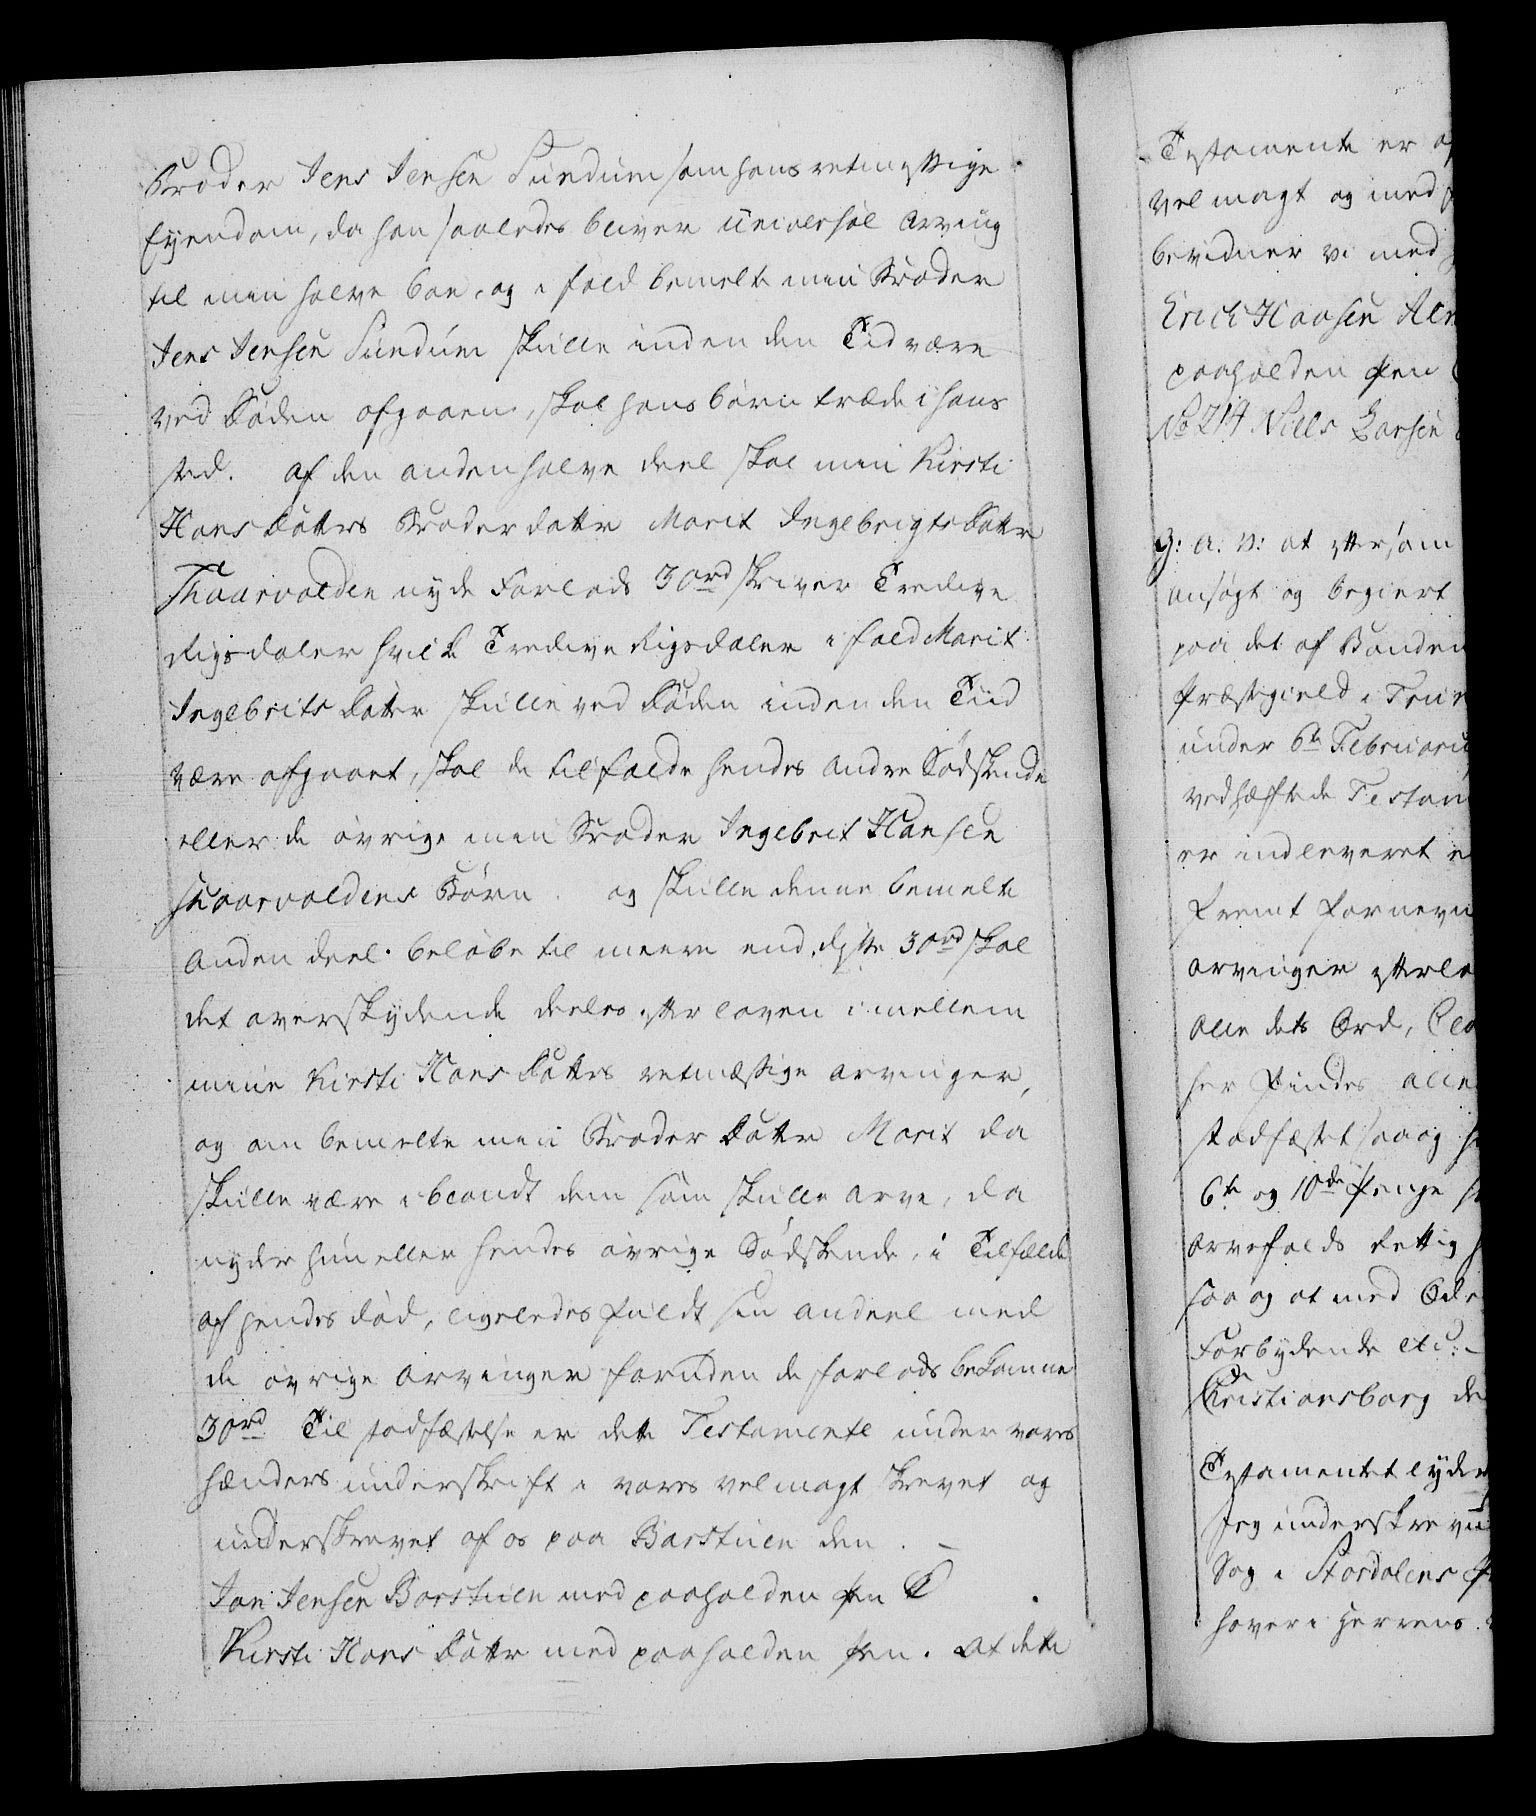 Broder Jens Jensen Sundum som hans retmessige
Eyendom, da han saaledes bliver universal Arving
til min halve boe, og i fald bemelte min Broder
Jens Jensen Sundum skulle inden den Tid være
ved Døden afgaaen, skal hans børn træde i hans
sted. af den anden halve deel skal min Kirsti
Hans Datters Broderdatter Marit Ingebrigts Datter
Skaarvolden nyde Forlods 30rd skriver Tredive
Rigsdaler hvilke Tredive Rigsdaler i fald Marit
Ingebrits Datter skulle ved Døden inden den Tiid
være afgaaet, skal de tilfalde hendes andre Sødskende
eller de øvrige min Broder Ingebret Hansen
Skaarvoldens Børn. og skulle denne bemelte
anden deel beløbe til meere end disse 30rd skal
det overskydende deeles efter loven imellem
mine Kirsti Hans Datters retmæssige arvinger,
og om bemelte min Broder Datter Marit da
skulle være iblandt dem som skulle arve, da
nyder hun eller hendes øvrige Sødskende, i Tilfælde
af hendes død, ligeledes fuldt sin andeel med
de øvrige Arvinger foruden de forlods bekomne
30rd Til stadfæstelse er dette Testamente under vores
hænders underskrift i vores velmagt skrevet og
underskrevet af os paa Barstuen den . -
Jon Jensen Barstuen med paaholden pen
Kirsti Hans Datter med paaholden pen. At dette
Testamente er
velmagt og med
bevidner vi med
Erich Haasen
paaholden pen
No 214 Niels Larsen
G: A: V: at eftersom
ansøgt og begiert
paa det af Bonden
Præstegield i
under 6te Februarii
vedhæftede
er indleveret
fremt fornevn
arvinger efterla
alle dets Ord,
her findes alle
stadfæstet saa og
6te og 10de Penge
arvefalds rettig
saa og at med
Forbydende etc: -
Christiansborg de
Testamentet lyder
Jeg underskrevn
Sog i Stordalens
haver i Herrens